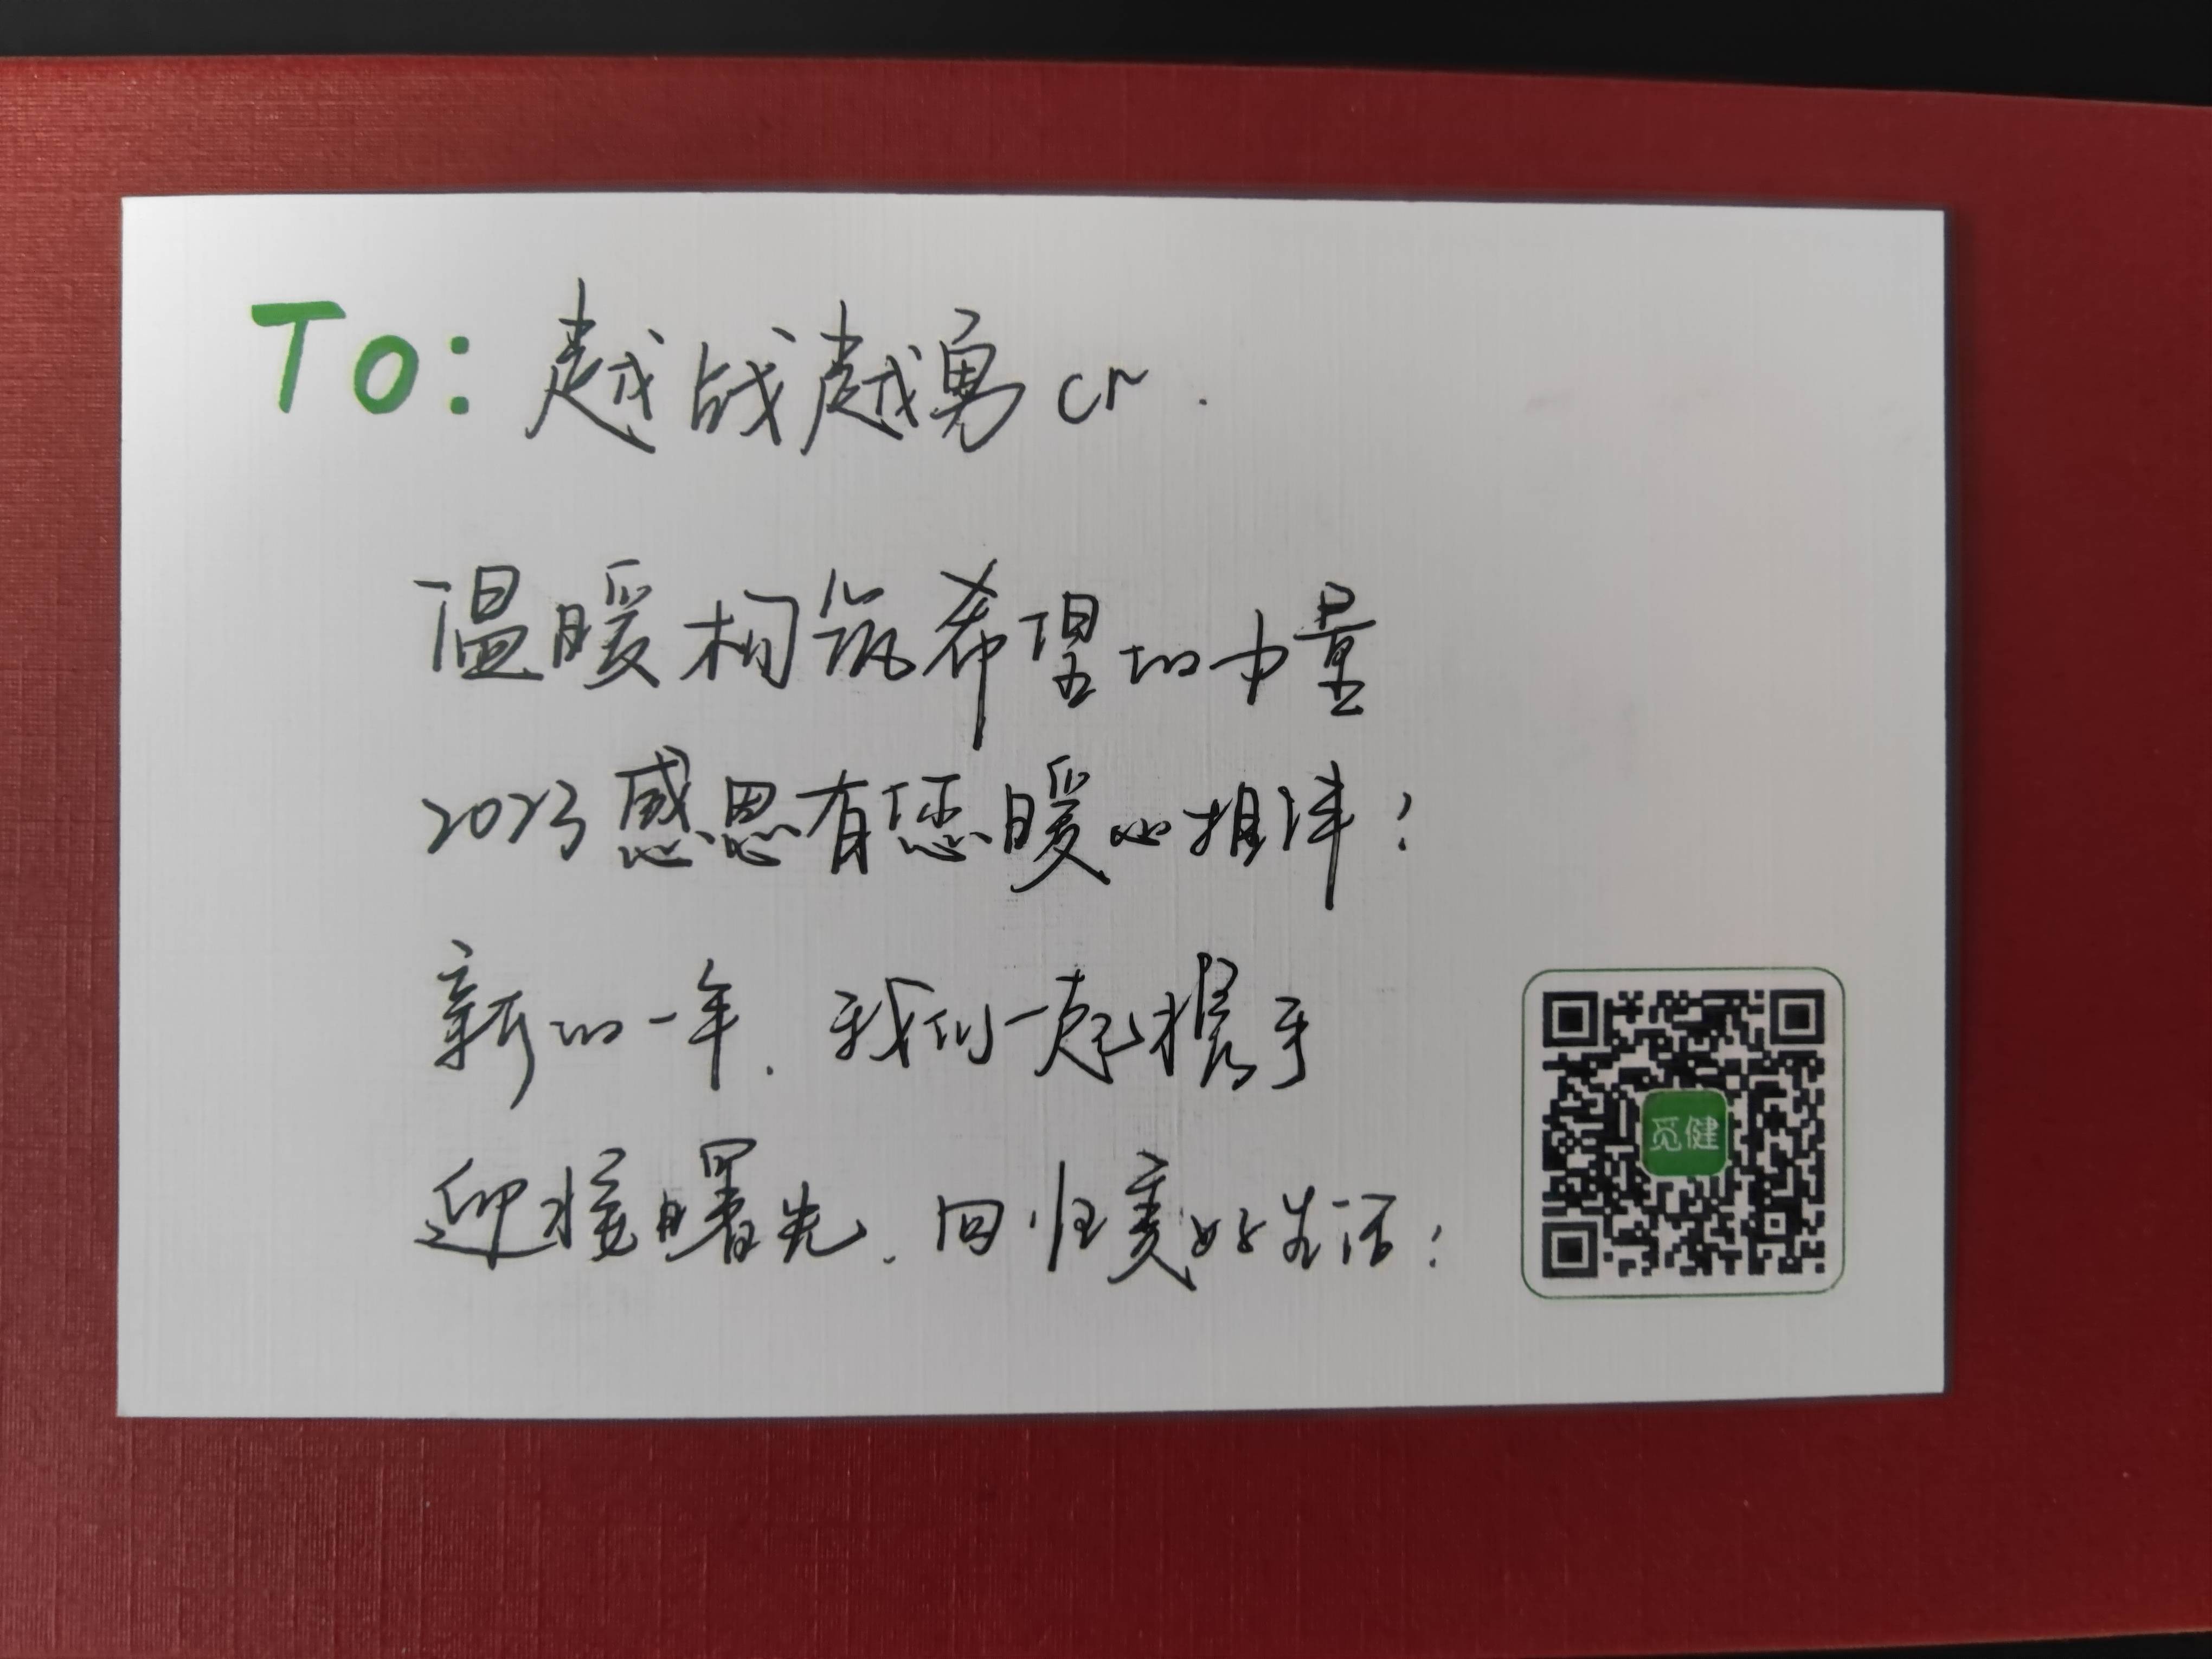 To: 越战越勇cr.
温暖相筑希望的力量
2023感恩有您暖心相伴！
新的一年.我们一起携手
迎接曙光.回归美好生活！
觅健